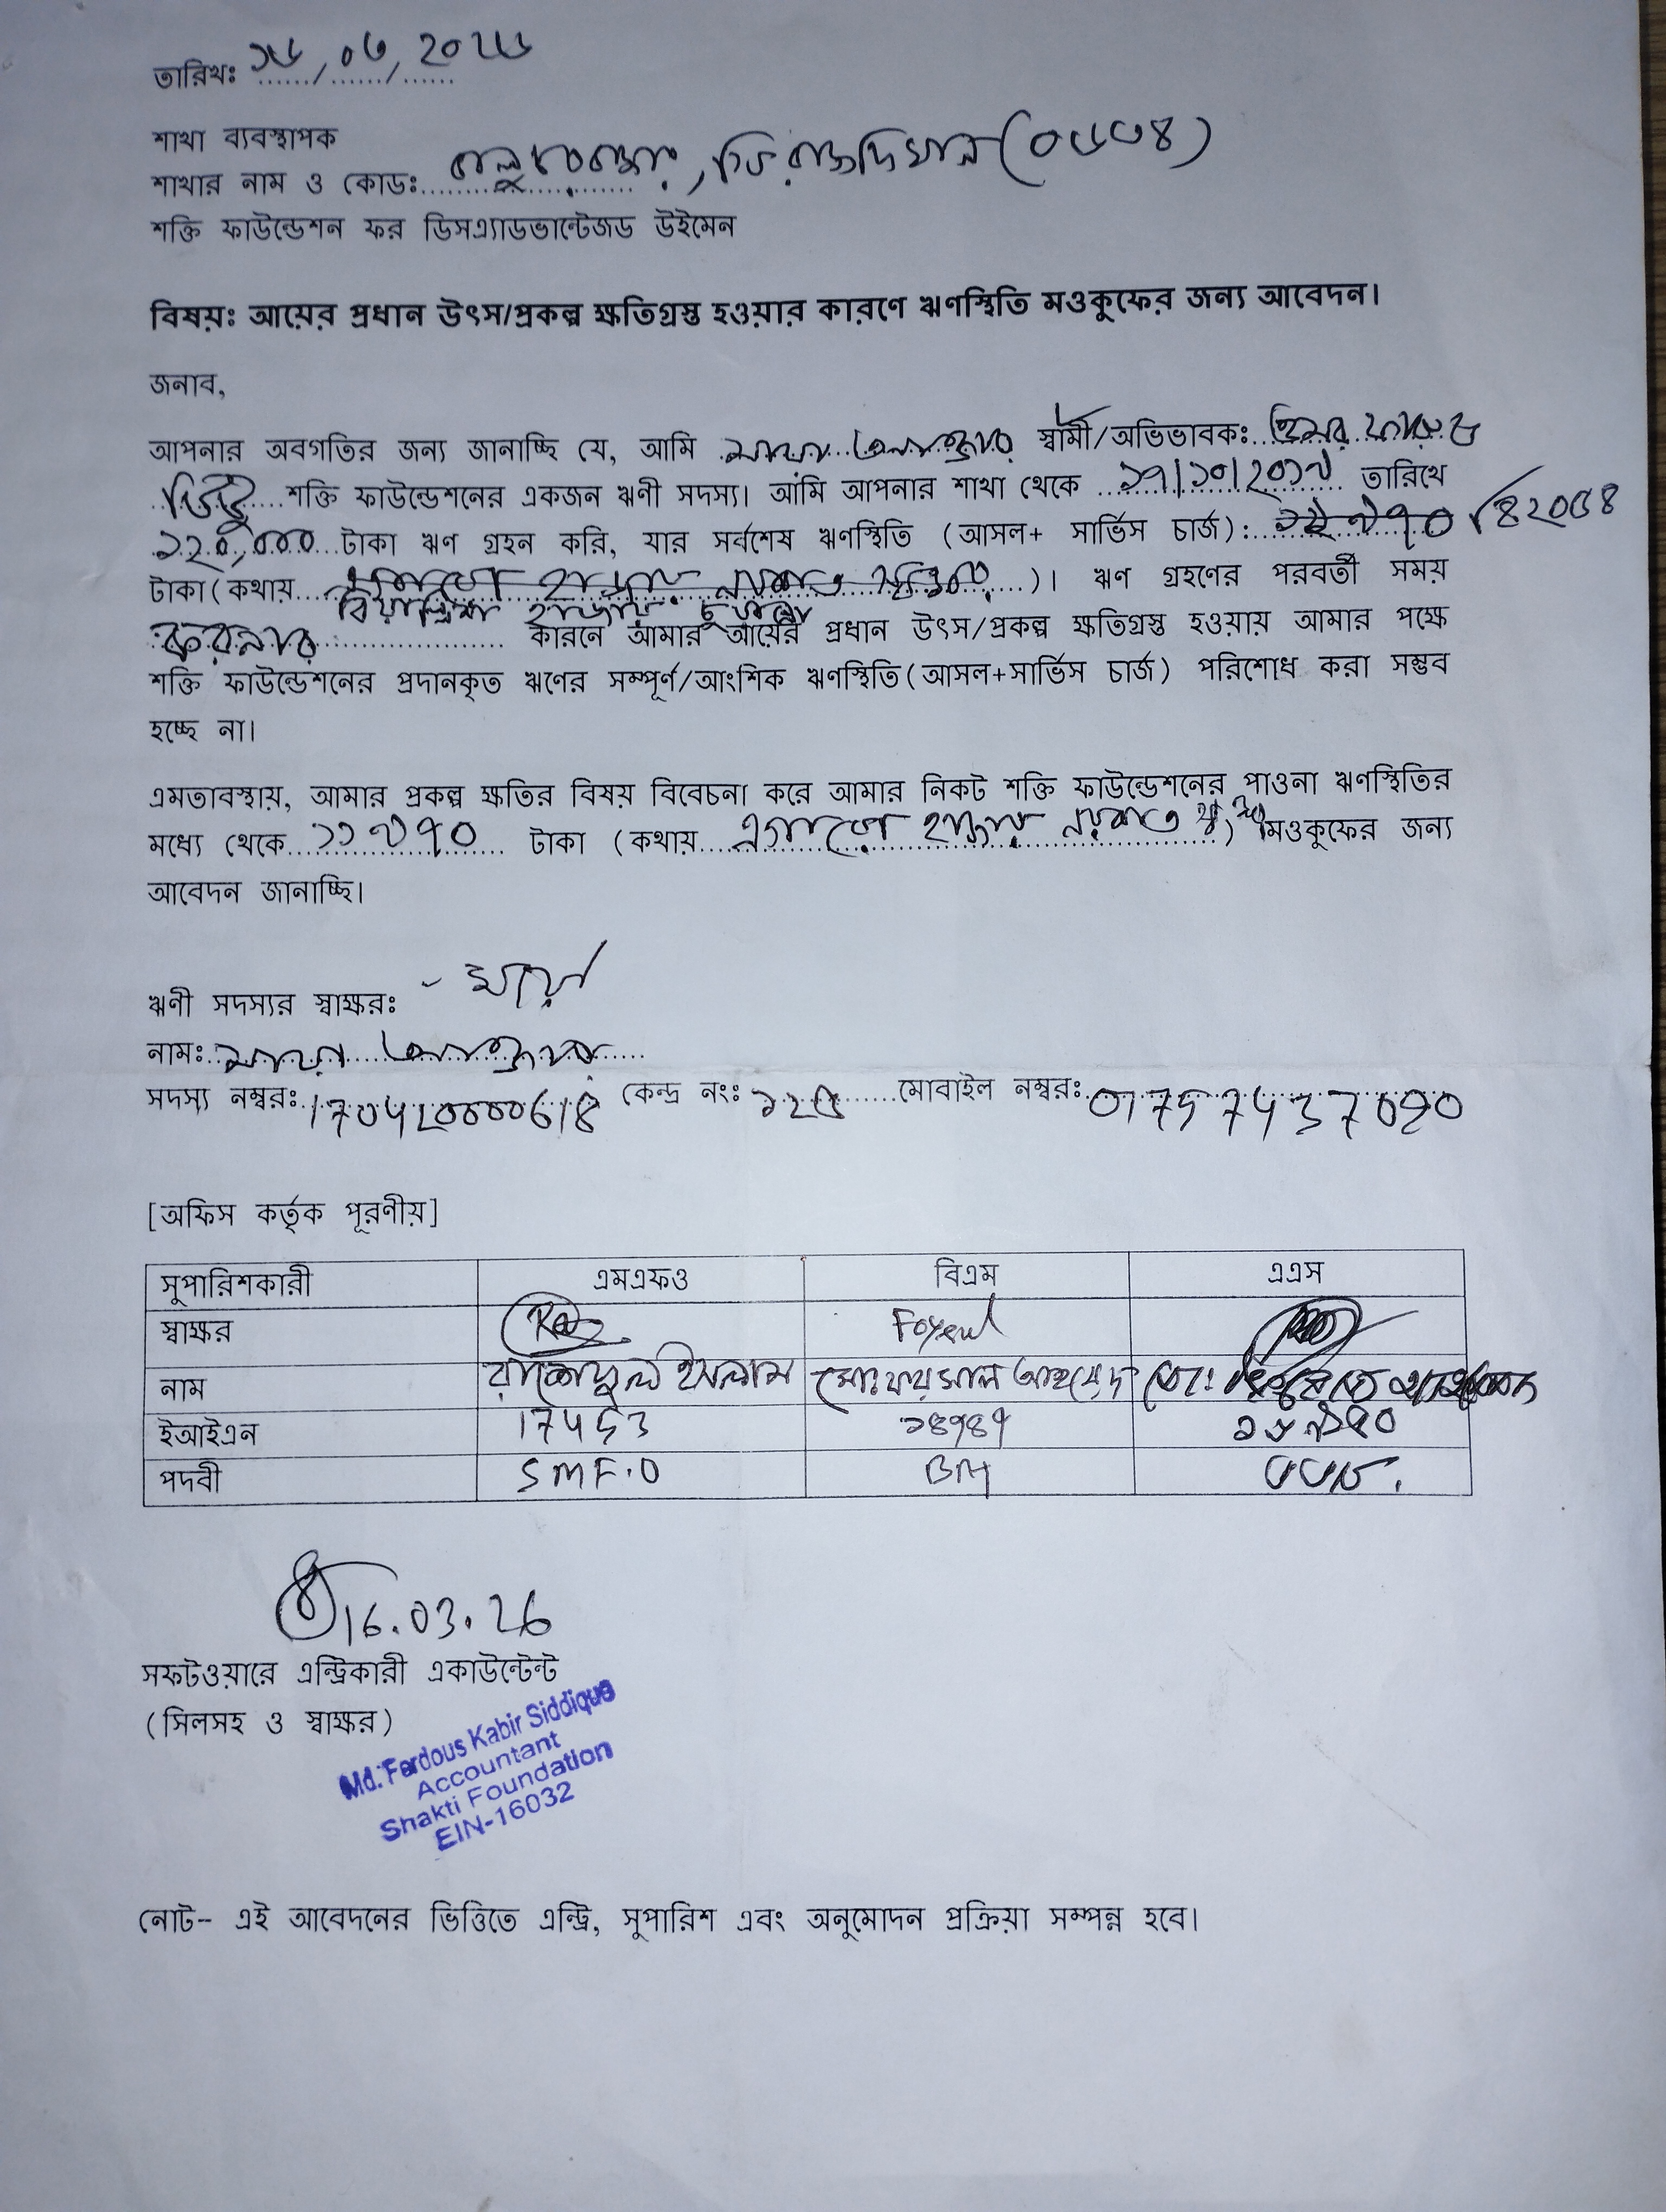 তারিখঃ ১৬/০৩/২০২৬
শাখা ব্যবস্থাপক
শাখার নাম ও কোডঃ বালুচর বাজার, সিরাজদিখান (০৬৩৪)
শক্তি ফাউন্ডেশন ফর ডিসএ্যাডভান্টেজড উইমেন
বিষয়ঃ আয়ের প্রধান উৎস/প্রকল্প ক্ষতিগ্রস্ত হওয়ার কারণে ঋণস্থিতি মওকুফের জন্য আবেদন।
জনাব,
আপনার অবগতির জন্য জানাচ্ছি যে, আমি মায়া আক্তার স্বামী/অভিভাবকঃ ফারুক
শক্তি ফাউন্ডেশনের একজন ঋণী সদস্য। আমি আপনার শাখা থেকে ১৭/১০/২০১৯ তারিখে
১২০,০০০ টাকা ঋণ গ্রহন করি, যার সর্বশেষ ঋণস্থিতি (আসল+ সার্ভিস চার্জ): ৪২০৫৪
টাকা(কথায় )। ঋণ গ্রহণের পরবর্তী সময়
বিয়াল্লিশ হাজার চুয়ান্ন
করনার কারনে আমার আয়ের প্রধান উৎস/প্রকল্প ক্ষতিগ্রস্ত হওয়ায় আমার পক্ষে
শক্তি ফাউন্ডেশনের প্রদানকৃত ঋণের সম্পূর্ণ/আংশিক ঋণস্থিতি(আসল+সার্ভিস চার্জ) পরিশোধ করা সম্ভব
হচ্ছে না।
এমতাবস্থায়, আমার প্রকল্প ক্ষতির বিষয় বিবেচনা করে আমার নিকট শক্তি ফাউন্ডেশনের পাওনা ঋণস্থিতির
মধ্যে থেকে ১১৯৭০ টাকা (কথায় এগারো হাজার নয়শত ) মওকুফের জন্য
আবেদন জানাচ্ছি।
ঋণী সদস্যর স্বাক্ষরঃ - মায়া
নামঃ মায়া আক্তার
সদস্য নম্বরঃ 170420000618 কেন্দ্র নংঃ ১২৫ মোবাইল নম্বরঃ
[অফিস কর্তৃক পূরণীয়]
সুপারিশকারী এমএফও বিএম এএস
স্বাক্ষর Foysul
নাম ইসলাম মোঃ ফয়সাল আহমেদ মোঃ
ইআইএন 17453 ১৪৭৪৭
পদবী SMF.O BM
16.03.26
সফটওয়ারে এন্ট্রিকারী একাউন্টেন্ট
(সিলসহ ও স্বাক্ষর)
Md. Ferdous Kabir Siddique
Accountant
Shakti Foundation
EIN-16032
নোট- এই আবেদনের ভিত্তিতে এন্ট্রি, সুপারিশ এবং অনুমোদন প্রক্রিয়া সম্পন্ন হবে।